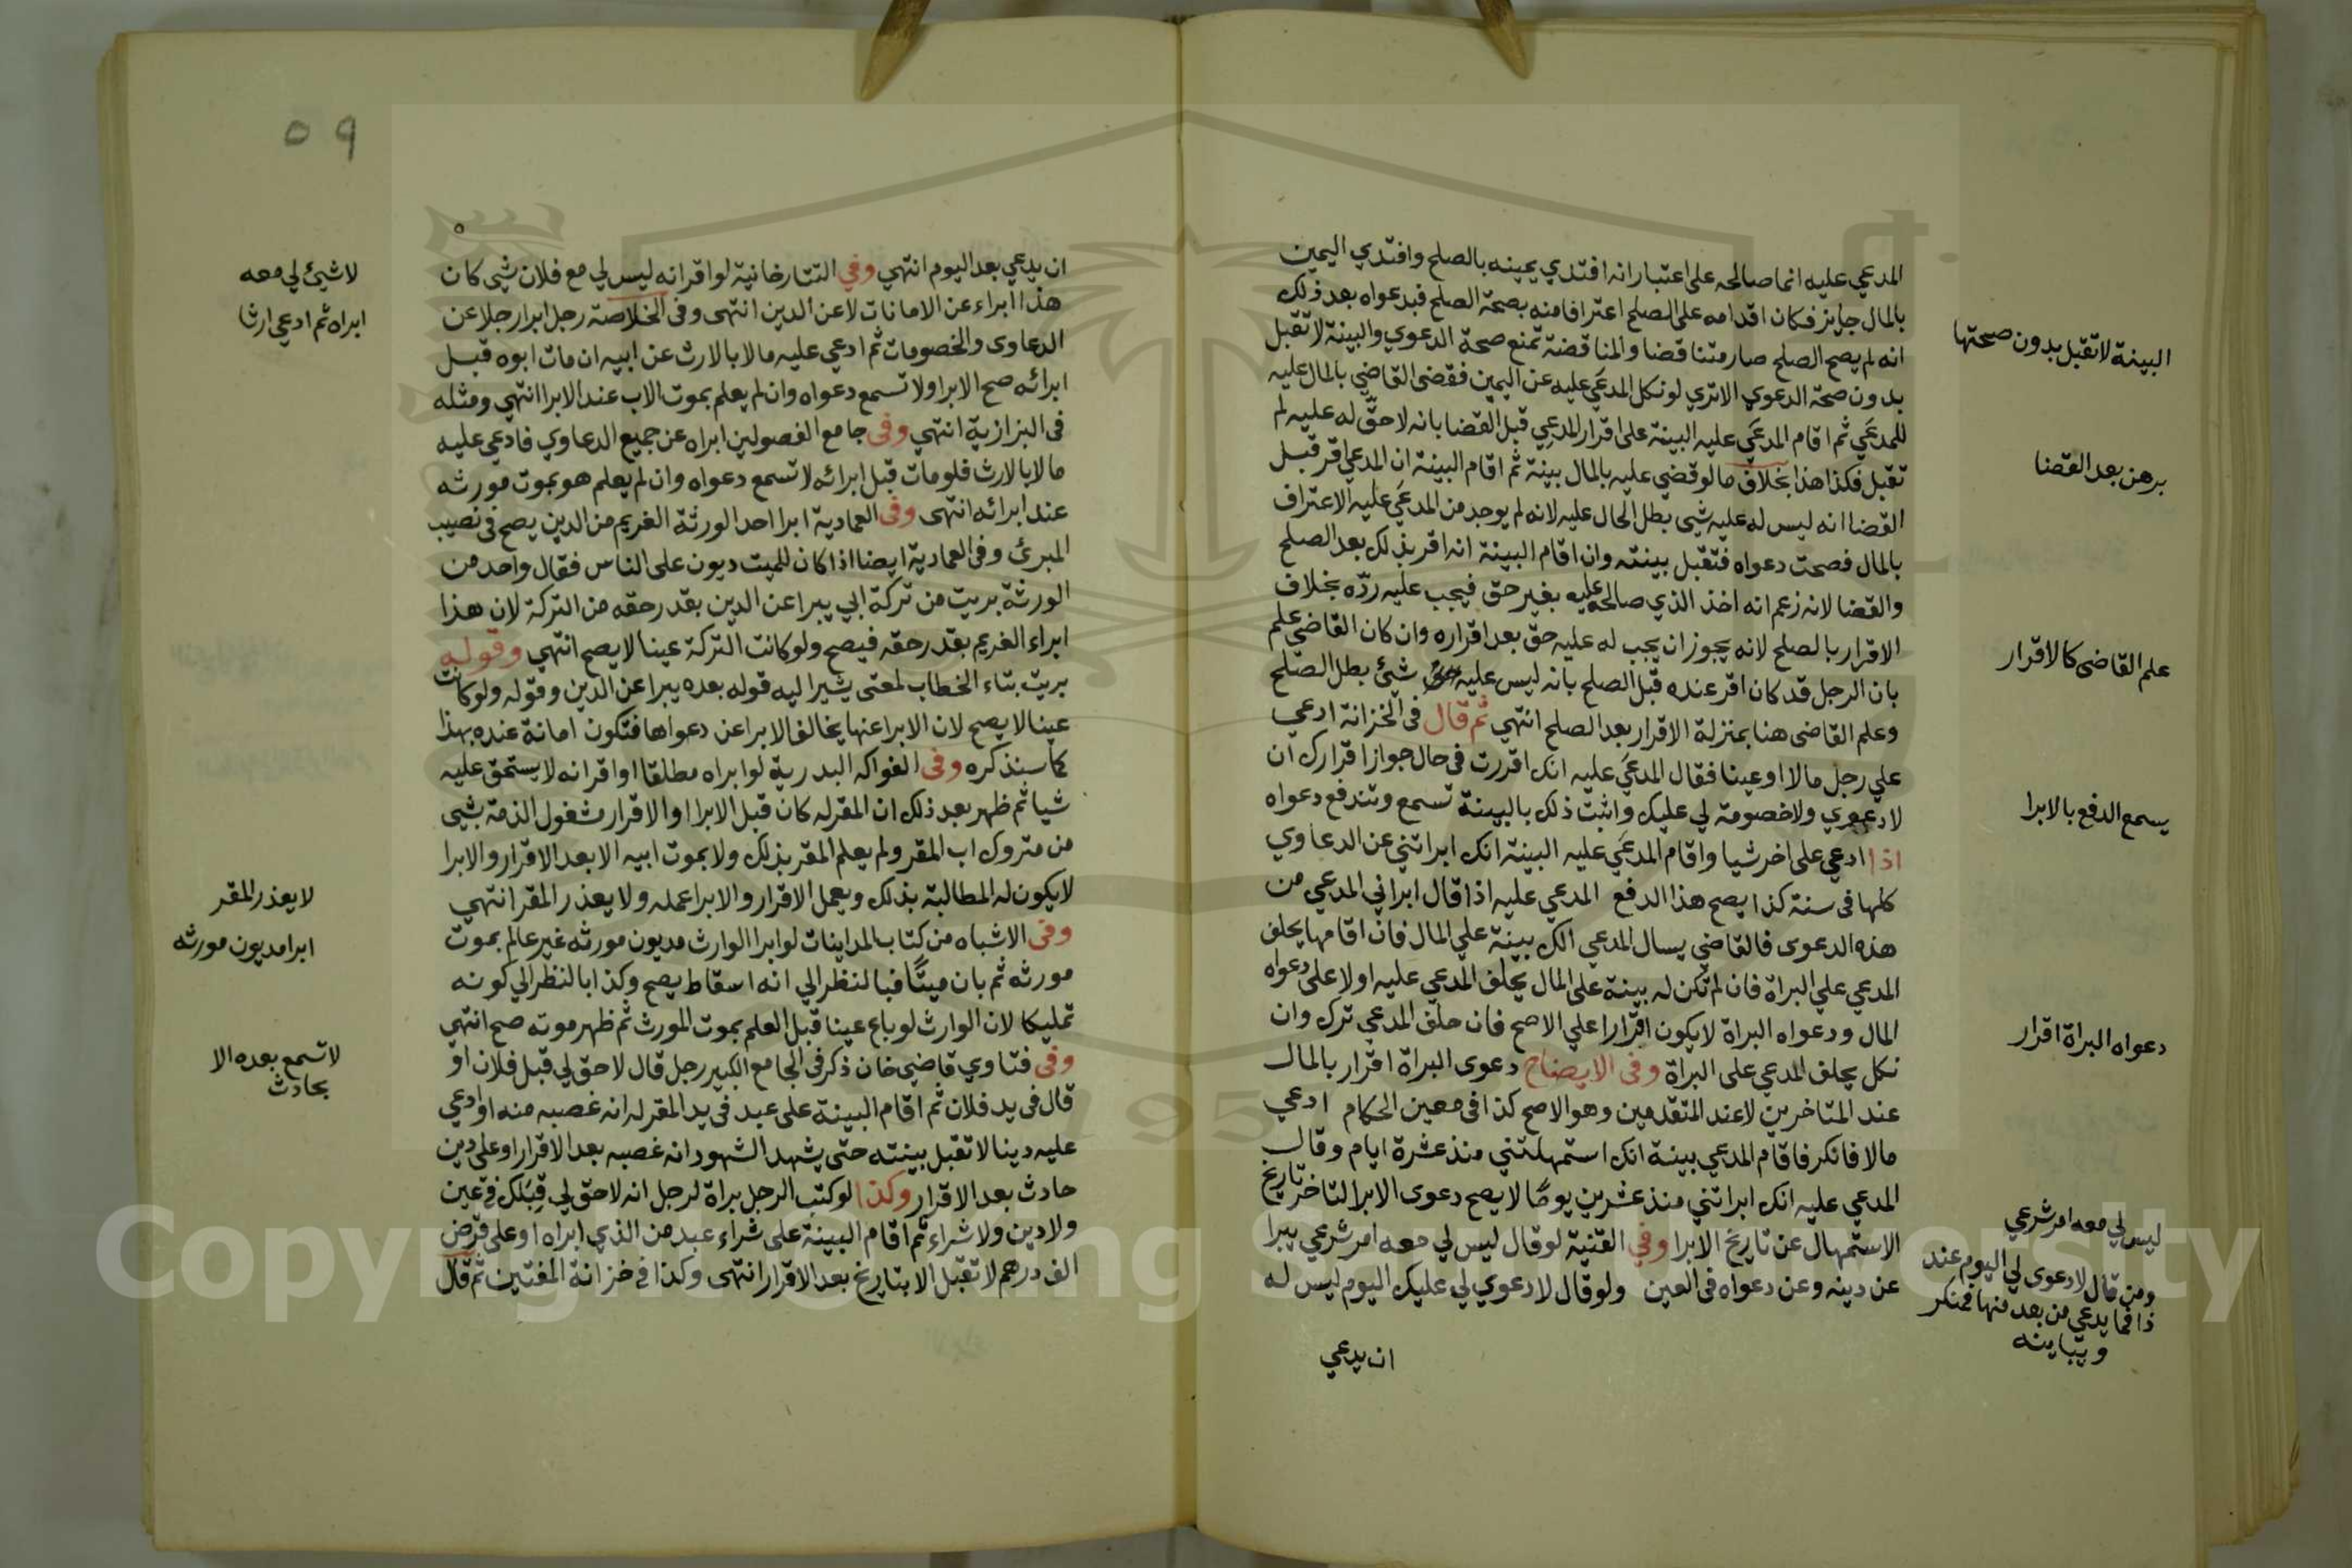 المدعي عليه انما صالحه على اعتبار انه افتدي يمينه بالصلح وافتدي اليمين
بالمال جايز فكان اقدامه على الصلح اعترافا منه بصحة الصلح فبدعواه بعد ذلك
انه لم يصح الصلح صار متناقضا والمناقضة تمنع صحة الدعوي والبينة لا تقبل
بدون صحة الدعوي الا تري لو نكل المدعَي عليه عن اليمين فقضى القاضي بالمال عليه
للمدعَي ثم اقام المدعَي عليه البينة على اقرار المدعِي قبل القضا بانه لا حقّ له عليه لم
تقبل فكذا هذا بخلاف ما لو قضي عليه بالمال ببينة ثم اقام البينة ان المدعي اقر قبل
القضا انه ليس له عليه شي بطل المال عليه لانه لم يوجد من المدعَي عليه الاعتراف
بالمال فصحت دعواه فتقبل بينته وان اقام البينة انه اقر بذلك بعد الصلح
والقضا لانه زعم انه اخذ الذي صالحه عليه بغير حق فيجب عليه ردّه بخلاف
الاقرار بالصلح لانه يجوز ان يجب له عليه حق بعد اقراره وان كان القاضي علم
بان الرجل قد كان اقر عنده قبل الصلح بانه ليس عليه شئ بطل الصلح
وعلم القاضي هنا بمنزلة الاقرار بعد الصلح انتهي ثم قال فى الخزانة ادعي
علي رجل مالا او عينا فقال المدعَي عليه انك اقررت فى حال جواز اقرارك ان
لا دعوي ولا خصومة لي عليك واثبت ذلك بالبينة تسمع وتندفع دعواه
اذا ادعي على اخر شيا واقام المدعَي عليه البينة انك ابراتني عن الدعاوي
كلها فى سنة كذا يصح هذا الدفع المدعي عليه اذا قال ابراني المدعي من
هذه الدعوى فالقاضي يسال المدعي الك بينة علي المال فان اقامها يحلف
المدعي علي البراة فان لم تكن له بينة على المال يحلف المدعي عليه اولا على دعواه
المال ودعواه البراة لا يكون اقرارا علي الاصح فان حلف المدعي ترك وان
نكل يحلف المدعي على البراة وفى الايضاح دعوى البراة اقرار بالمال
عند المتاخرين لا عند المتقدمين وهو الاصح كذا فى معين الحكام ادعي
مالا فانكر فاقام المدعي بينة انك استمهلتني منذ عشرة ايام وقال
المدعي عليه انك ابراتني منذ عشرين يومًا لا يصح دعوى الابرا لتاخر تاريخ
الاستمهال عن تاريخ الابرا وفي القنية لو قال ليس لي معه امر شرعي يبرا
عن دينه وعن دعواه فى العين ولو قال لا دعوي لي عليك اليوم ليس له
ان يدعي
البينة لا تقبل بدون صحتها
برهن بعد القضا
علم القاضى كالاقرار
يسمع الدفع بالابرا
دعواه البراة اقرار
ليس لي معه امر شرعي
ومن قال لا دعوى لي اليوم عند
ذا فما يدعي من بعد منها فمنكر
٥٩
ان يدعي بعد اليوم انتهي وفي التتارخانية لو اقر انه ليس لي مع فلان شي كان
هذا ابراء عن الامانات لا عن الدين انتهى وفى الخلاصة رجل ابرا رجلا عن
الدعاوى والخصومات ثم ادعي عليه مالا بالارث عن ابيه ان مات ابوه قبل
ابرائه صح الابرا ولا تسمع دعواه وان لم يعلم بموت الاب عند الابرا انتهي ومثله
فى البزازية انتهي وفى جامع الفصولين ابراه عن جميع الدعاوي فادعي عليه
مالا بالارث فلو مات قبل ابرائه لا تسمع دعواه وان لم يعلم هو بموت مورثه
عند ابرائه انتهى وفى العمادية ابرا احد الورثة الغريم من الدين يصح فى نصيب
المبرئ وفى العمادية ايضا اذا كان للميت ديون على الناس فقال واحد من
الورثة بريت من تركة ابي يبرا عن الدين بقدر حقه من التركة لان هذا
ابراء الغريم بقدر حقه فيصح ولو كانت التركة عينا لا يصح انتهي وقوله
بريت بتاء الخطاب لمعتي يشير اليه قوله بعده يبرا عن الدين وقوله ولو كانت
عينا لا يصح لان الابرا عنها يخالف الابرا عن دعواها فتكون امانة عنده بهذا
كما سنذكره وفى الفواكه البدرية لو ابراه مطلقا او اقر انه لا يستحق عليه
شيا ثم ظهر بعد ذلك ان المقر له كان قبل الابرا او الاقرار مشغول الذمة بشيى
من متروك اب المقر ولم يعلم المقر بذلك ولا بموت ابيه الا بعد الاقرار والابرا
لا يكون له المطالبة بذلك ويعمل الاقرار والابرا عمله ولا يعذر المقر انتهي
وفى الاشباه من كتاب المداينات لو ابرا الوارث مديون مورثه غير عالم بموت
مورثه ثم بان ميتًا فبالنظر الي انه اسقاط يصح وكذا بالنظر الي كونه
تمليكا لان الوارث لو باع عينا قبل العلم بموت المورث ثم ظهر موته صح انتهي
وفى فتاوي قاضي خان ذكر فى الجامع الكبير رجل قال لا حق لي قبل فلان او
قال فى يد فلان ثم اقام البينة على عبد فى يد المقر له انه غصبه منه او ادعي
عليه دينا لا تقبل بينته حتى يشهد الشهود انه غصبه بعد الاقرار او على دين
حادث بعد الاقرار وكذا لو كتب الرجل براة لرجل انه لا حق لي قِبَلك فى عين
ولا دين ولا شراء ثم اقام البينة على شراء عبد من الذي ابراه او على قرض
الف درهم لا تقبل الا بتاريخ بعد الاقرار انتهى وكذا فى خزانة المفتين ثم قال
لا شيئ لي معه
ابراه ثم ادعى ارثا
لا يعذر المقر
ابرا مديون مورثه
لا تسمع بعده الا
بحادث
Copyright © King Saud University